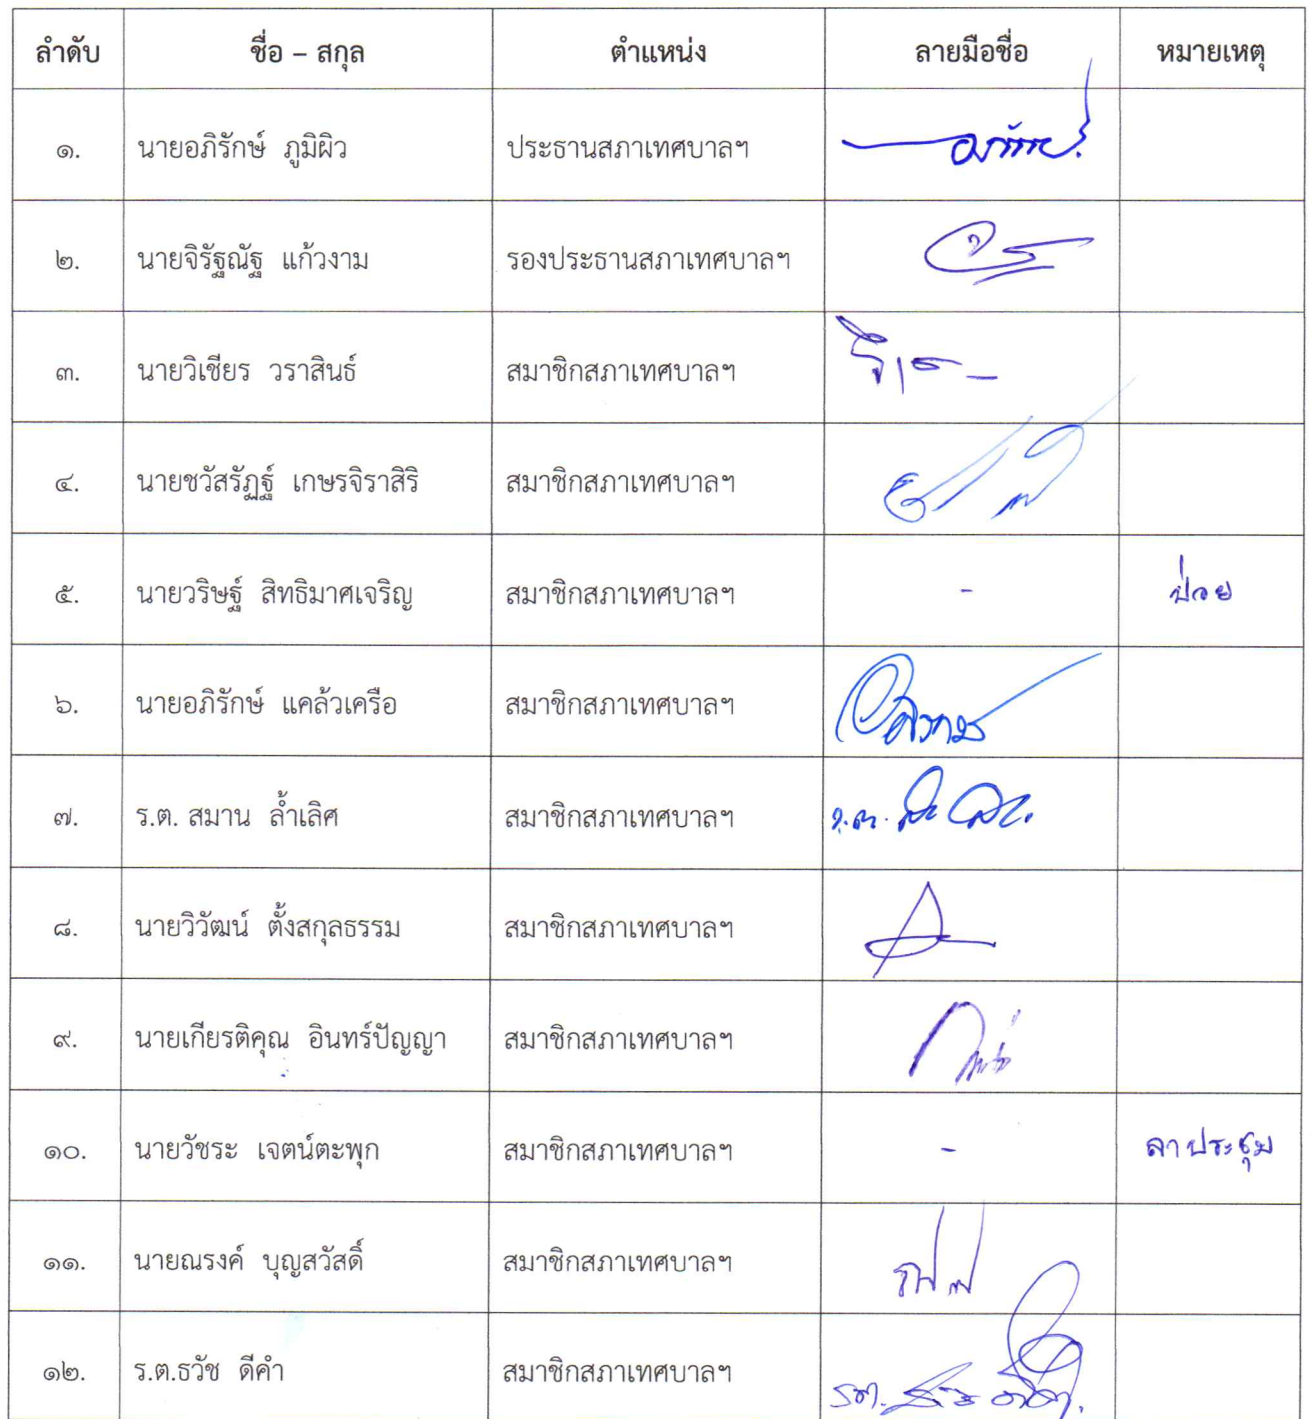 ลำดับ ชื่อ – สกุล ตำแหน่ง ลายมือชื่อ หมายเหตุ
๑. นายอภิรักษ์ ภูมิผิว ประธานสภาเทศบาลฯ
๒. นายจิรัฐณัฐ แก้วงาม รองประธานสภาเทศบาลฯ
๓. นายวิเชียร วราสินธ์ สมาชิกสภาเทศบาลฯ
๔. นายชวัสรัฏฐ์ เกษรจิราสิริ สมาชิกสภาเทศบาลฯ
๕. นายวริษฐ์ สิทธิมาศเจริญ สมาชิกสภาเทศบาลฯ - ป่วย
๖. นายอภิรักษ์ แคล้วเครือ สมาชิกสภาเทศบาลฯ
๗. ร.ต. สมาน ล้ำเลิศ สมาชิกสภาเทศบาลฯ
๘. นายวิวัฒน์ ตั้งสกุลธรรม สมาชิกสภาเทศบาลฯ
๙. นายเกียรติคุณ อินทร์ปัญญา สมาชิกสภาเทศบาลฯ
๑๐. นายวัชระ เจตน์ตะพุก สมาชิกสภาเทศบาลฯ - ลาประชุม
๑๑. นายณรงค์ บุญสวัสดิ์ สมาชิกสภาเทศบาลฯ
๑๒. ร.ต.ธวัช ดีคำ สมาชิกสภาเทศบาลฯ